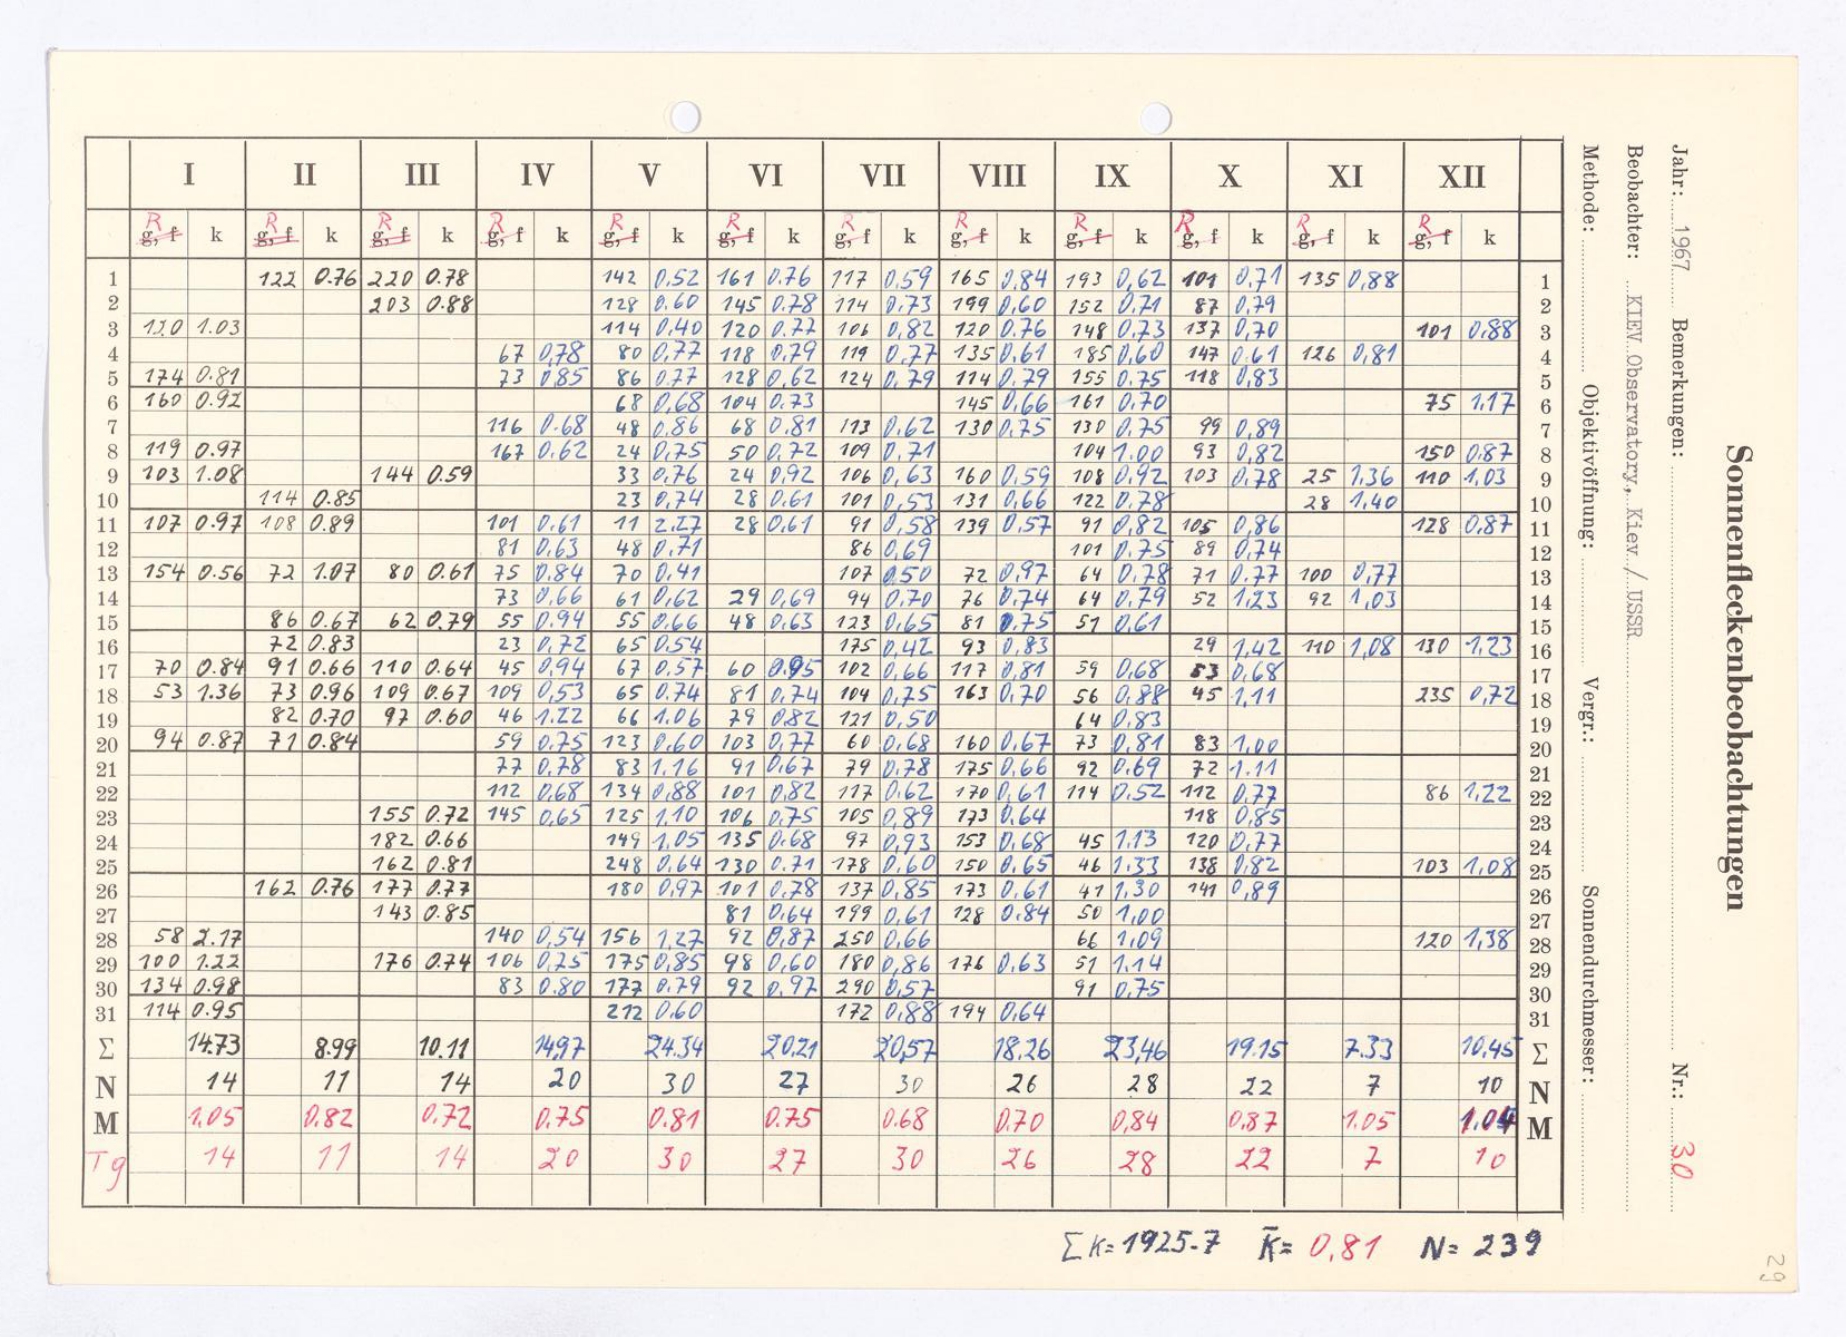 I II III IV V VI VII VIII IX X XI XII
R R R R R R R R R R R R
g, f k g, f k g, f k g, f k g, f k g, f k g, f k g, f k g, f k g, f k g, f k g, f k
1 122 0.76 220 0.78 142 0,52 161 0.76 117 0,59 165 0,84 193 0,62 101 0,71 135 0,88 1
2 203 0.88 128 0.60 145 0.78 114 0,73 199 0,60 152 0,71 87 0,79 2
3 120 1.03 114 0,40 120 0.77 106 0,82 120 0.76 148 0.73 137 0,70 101 0,88 3
4 67 0,78 80 0,77 118 0,79 119 0,77 135 0,61 185 0,60 147 0,61 126 0,81 4
5 174 0.81 73 0,85 86 0.77 128 0,62 124 0,79 114 0.79 155 0.75 118 0,83 5
6 160 0.92 68 0,68 104 0.73 145 0,66 161 0,70 75 1,17 6
7 116 0.68 48 0,86 68 0,81 113 0,62 130 0,75 130 0,75 99 0,89 7
8 119 0.97 167 0.62 24 0,75 50 0,72 109 0,71 104 1.00 93 0,82 150 0,87 8
9 103 1.08 144 0.59 33 0,76 24 0,92 106 0,63 160 0,59 108 0,92 103 0,78 25 1,36 110 1,03 9
10 114 0.85 23 0,74 28 0,61 101 0,53 131 0,66 122 0.78 28 1,40 10
11 107 0.97 108 0.89 101 0.61 11 2.27 28 0.61 91 0,58 139 0,57 91 0,82 105 0,86 128 0,87 11
12 81 0,63 48 0,71 86 0,69 101 0.75 89 0,74 12
13 154 0.56 72 1.07 80 0.61 75 0,84 70 0.41 107 0,50 72 0,97 64 0,78 71 0.77 100 0,77 13
14 73 0,66 61 0,62 29 0,69 94 0,70 76 0,74 64 0,79 52 1,23 92 1,03 14
15 86 0.67 62 0.79 55 0.94 55 0.66 48 0,63 123 0,65 81 0,75 51 0,61 15
16 72 0.83 23 0,72 65 0.54 175 0,42 93 0,83 29 1,42 110 1,08 130 1,23 16
17 70 0.84 91 0.66 110 0.64 45 0,94 67 0.57 60 0.95 102 0,66 117 0,81 59 0,68 53 0,68 17
18 53 1.36 73 0.96 109 0.67 109 0,53 65 0.74 81 0,74 104 0,75 163 0,70 56 0,88 45 1,11 235 0,72 18
19 82 0.70 97 0.60 46 1.22 66 1.06 79 0,82 121 0,50 64 0.83 19
20 94 0.87 71 0.84 59 0,75 123 0,60 103 0,77 60 0,68 160 0,67 73 0,81 83 1,00 20
21 77 0,78 83 1.16 91 0,67 79 0.78 175 0,66 92 0.69 72 1.11 21
22 112 0,68 134 0,88 101 0,82 117 0.62 170 0,61 114 0.52 112 0,77 86 1,22 22
23 155 0.72 145 0,65 125 1,10 106 0,75 105 0,89 173 0.64 118 0,85 23
24 182 0.66 149 1,05 135 0.68 97 0,93 153 0,68 45 1.13 120 0,77 24
25 162 0.81 248 0,64 130 0.71 178 0,60 150 0.65 46 1.33 138 0,82 103 1,08 25
26 162 0.76 177 0.77 180 0,97 101 0,78 137 0,85 173 0,61 41 1,30 141 0,89 26
27 143 0.85 81 0,64 199 0,61 128 0.84 50 1,00 27
28 58 2.17 140 0,54 156 1,27 92 0,87 250 0,66 66 1,09 120 1,38 28
29 100 1.22 176 0.74 106 0,75 175 0,85 98 0,60 180 0,86 176 0.63 51 1.14 29
30 134 0.98 83 0.80 177 0.79 92 0,97 290 0,57 91 0.75 30
31 114 0.95 212 0.60 172 0,88 194 0,64 31
Σ 14.73 8.99 10.11 14,97 24.34 20,21 20,57 18.26 23,46 19.15 7.33 10,45 Σ
N 14 11 14 20 30 27 30 26 28 22 7 10 N
M 1.05 0.82 0.72 0.75 0.81 0.75 0.68 0.70 0,84 0.87 1.05 1.04 M
Tg 14 11 14 20 30 27 30 26 28 22 7 10
Σ K= 1925-7 K̄= 0,81 N= 239
Sonnenfleckenbeobachtungen
Jahr: 1967 Bemerkungen: Nr.: 30
Beobachter: KIEV Observatory, Kiev / USSR
Methode: Objektivöffnung: Vergr.: Sonnendurchmesser:
29